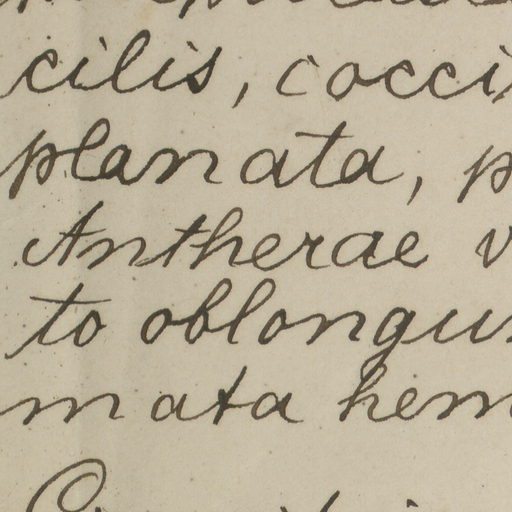 cilis, cocci
planata, p
Antherae v
to oblongu
mata hem